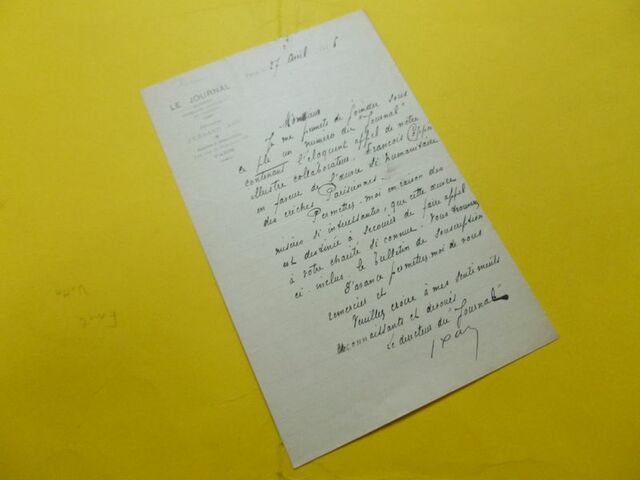 27 avril 6
LE JOURNAL
PARIS
Monsieur
Je me permets de joindre sous
ce pli un numéro du "Journal"
contenant l'éloquent appel de notre
illustre collaborateur, François Coppée
en faveur de l'œuvre si humanitaire
des crèches Parisiennes.
Permettez-moi en raison des
misères si intéressantes que cette œuvre
est destinée à secourir de faire appel
à votre charité si connue. Vous trouverez
ci-inclus le bulletin de souscription
D'avance permettez-moi de vous
remercier et
Veuillez croire à mes sentiments
reconnaissants et dévoués
Le directeur du "Journal"